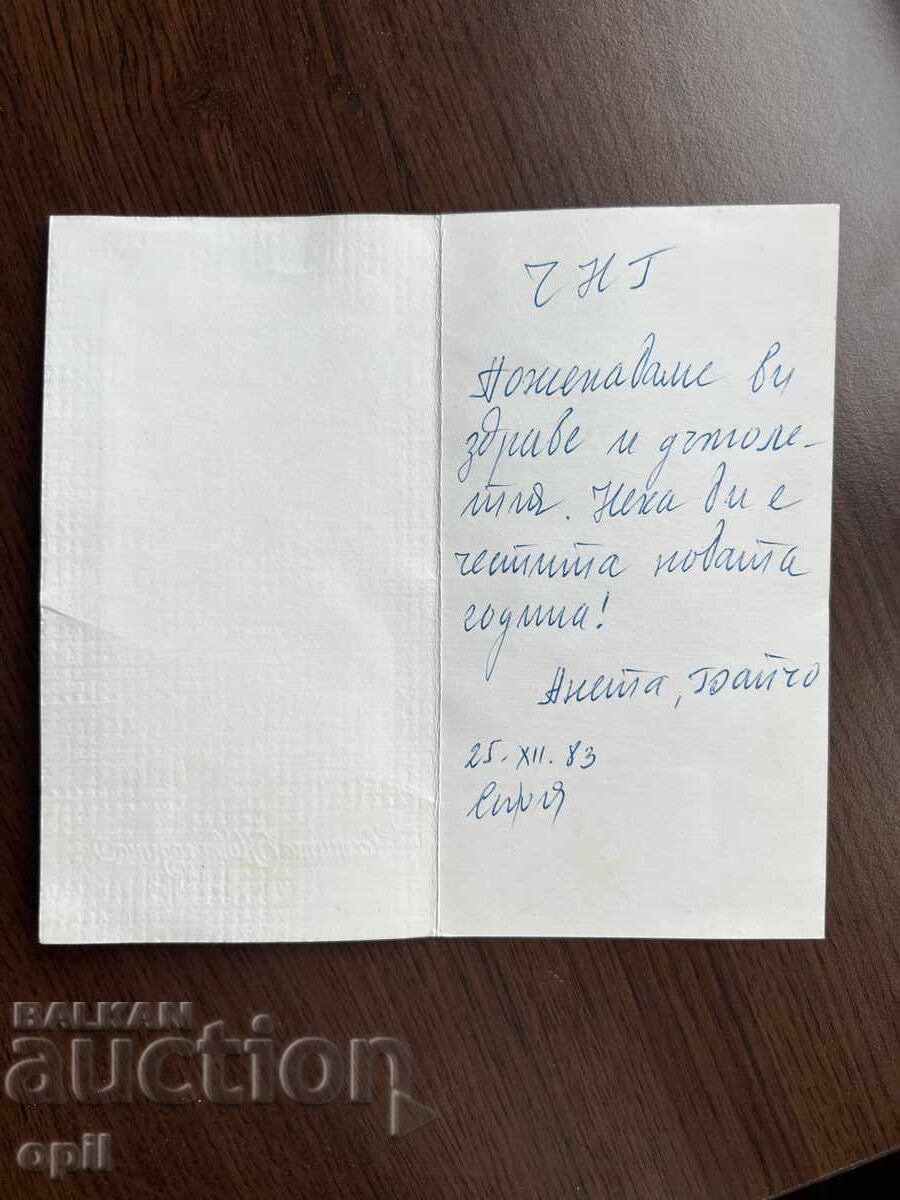 ЧНГ
Пожелаваме ви
здраве и дълголе-
тия. Нека ви е
честита новата
година!
Анета, Трайчо
25.XII.83
София
BALKAN
auction
opil